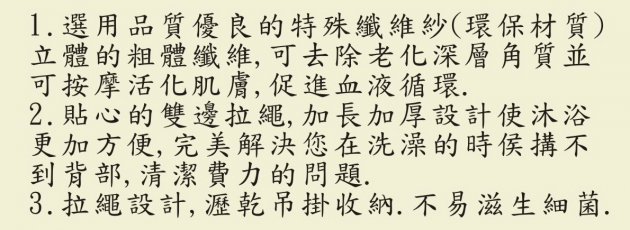 1.選用品質優良的特殊纖維紗(環保材質)
立體的粗體纖維,可去除老化深層角質並
可按摩活化肌膚,促進血液循環.
2.貼心的雙邊拉繩,加長加厚設計使沐浴
更加方便,完美解決您在洗澡的時侯搆不
到背部,清潔費力的問題.
3.拉繩設計,瀝乾吊掛收納.不易滋生細菌.